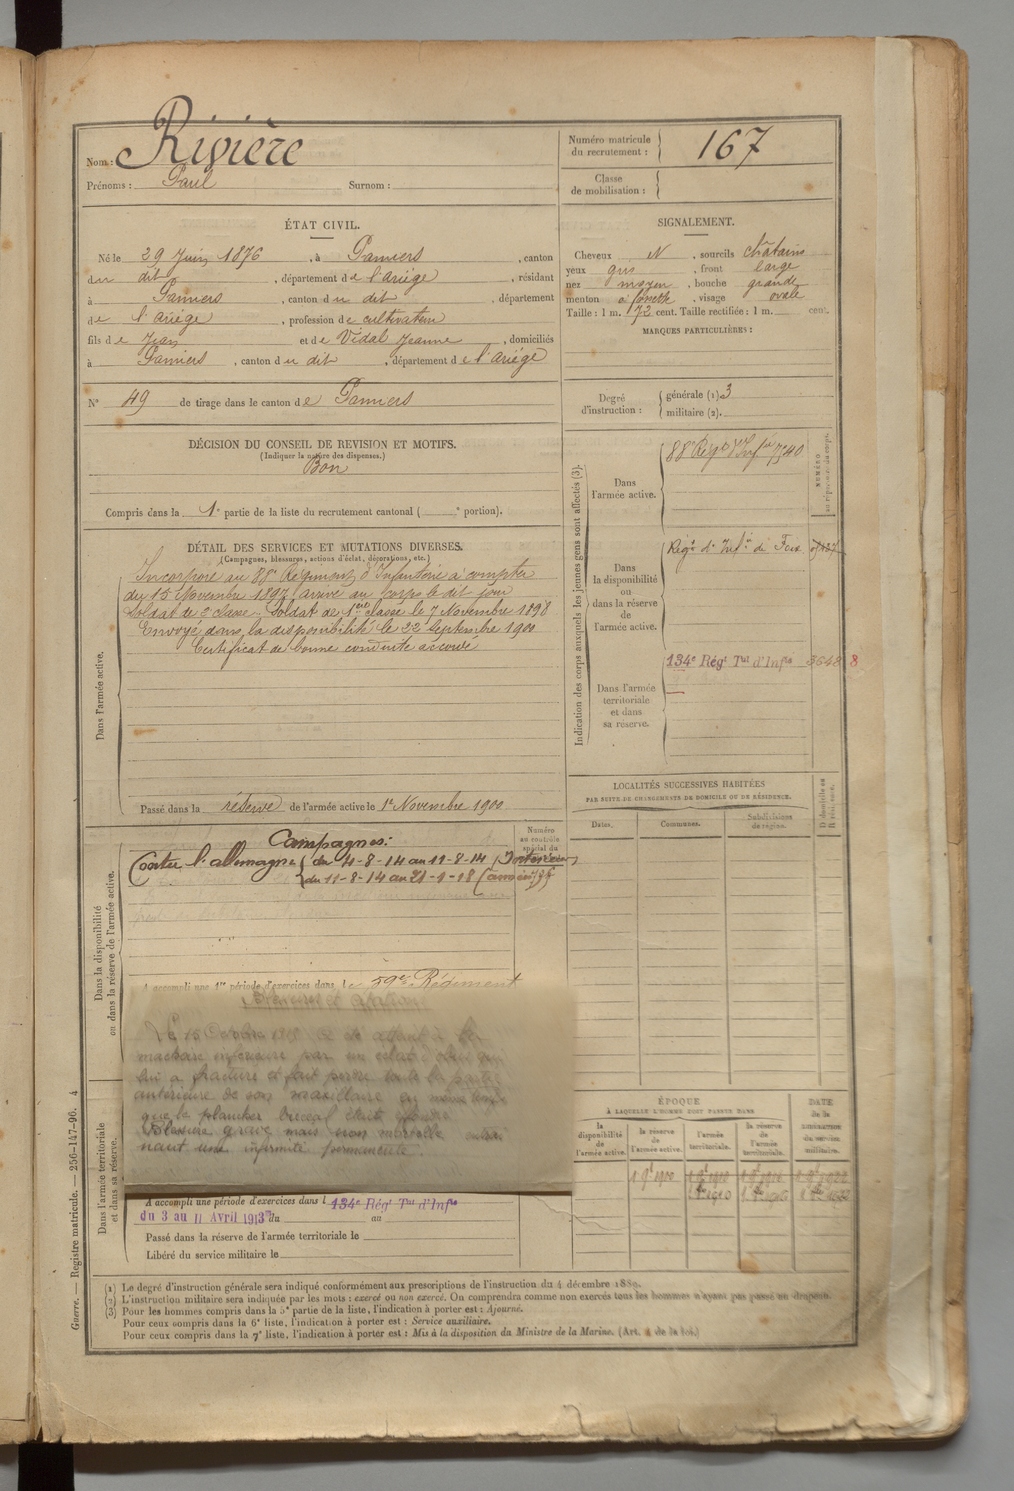 Nom : Rivière
Prénoms : Paul Surnom :
Numéro matricule
du recrutement : 167
Classe
de mobilisation :
ÉTAT CIVIL.
Né le 29 Juin 1876, à Pamiers, canton
du dit, département de l'Ariège, résidant
à Pamiers, canton du dit, département
de l'Ariège, profession de cultivateur
fils de Jean et de Vidal Jeanne, domiciliés
à Pamiers, canton du dit, département de l'Ariège
N° 49 de tirage dans le canton de Pamiers
DÉCISION DU CONSEIL DE REVISION ET MOTIFS.
(Indiquer la nature des dispenses.)
Bon
Compris dans la 1e partie de la liste du recrutement cantonal ( e portion).
SIGNALEMENT.
Cheveux N, sourcils châtains
yeux gris, front large
nez moyen, bouche grande
menton à fossette, visage ovale
Taille : 1 m. 72 cent. Taille rectifiée : 1 m. cent.
MARQUES PARTICULIÈRES :
Degré
d'instruction :
générale (1) 3
militaire (2).
DÉTAIL DES SERVICES ET MUTATIONS DIVERSES.
(Campagnes, blessures, actions d'éclat, décorations, etc.)
Dans l'armée active.
Incorporé au 88e Régiment d'Infanterie à compter
du 15 Novembre 1897, arrivé au corps le dit jour
Soldat de 2e classe. Soldat de 1ère classe le 7 Novembre 1898
Envoyé dans la disponibilité le 22 Septembre 1900
Certificat de bonne conduite accordé
Passé dans la réserve de l'armée active le 1er Novembre 1900
Indication des corps auxquels les jeunes gens sont affectés (3).
NUMÉRO
Dans
l'armée active.
88e Régt d'Infie 7540
Dans
la disponibilité
ou
dans la réserve
de
l'armée active.
Régt d'Infie de Foix
Dans l'armée
territoriale
et dans
sa réserve.
134e Régt Tal d'Infie 3648 8
LOCALITÉS SUCCESSIVES HABITÉES
PAR SUITE DE CHANGEMENTS DE DOMICILE OU DE RÉSIDENCE.
Dates.
Communes.
Subdivisions
de région.
D domicile ou
R résidence.
Dans la disponibilité
ou dans la réserve de l'armée active.
Numéro
au contrôle
spécial du
Campagnes :
Contre l'allemagne du 4-8-14 au 11-8-14 (Intérieur)
du 11-8-14 au 21-1-18 (armées)
A accompli une 1re période d'exercices dans le 59e Régiment
Le 15 Octobre
machoire inférieure par un éclat d'obus qui
lui a fracturé et fait perdre toute la partie
antérieure de son maxillaire en même temps
que le plancher buccal
Blessure grave mais non mortelle
une infirmité permanente.
Dans l'armée territoriale
et dans sa réserve.
A accompli une période d'exercices dans l 134e Régt Tal d'Infie
du 3 au 11 Avril 1913 du au
Passé dans la réserve de l'armée territoriale le
Libéré du service militaire le
ÉPOQUE
À LAQUELLE L'HOMME DOIT PASSER DANS
DATE
de la
libération
du service
militaire.
la
disponibilité
de
l'armée active.
la réserve
de
l'armée active.
l'armée
territoriale.
la réserve
de
l'armée
territoriale.
(1) Le degré d'instruction générale sera indiqué conformément aux prescriptions de l'instruction du 4 décembre 1889.
(2) L'instruction militaire sera indiquée par les mots : exercé ou non exercé. On comprendra comme non exercés tous les hommes n'ayant pas passé au drapeau.
(3) Pour les hommes compris dans la 5e partie de la liste, l'indication à porter est : Ajourné.
Pour ceux compris dans la 6e liste, l'indication à porter est : Service auxiliaire.
Pour ceux compris dans la 7e liste, l'indication à porter est : Mis à la disposition du Ministre de la Marine. (Art. 4 de la loi.)
Guerre. — Registre matricule. — 256-147-96. 4